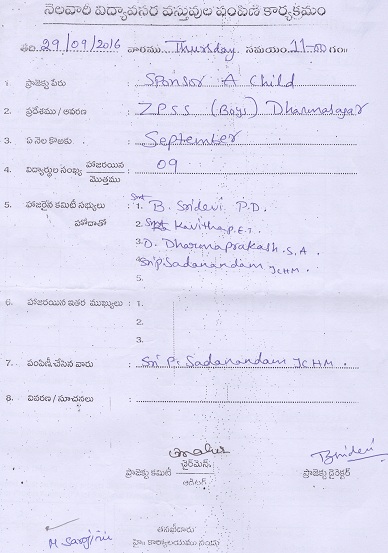 నెలవారీ విద్యావసర వస్తువుల పంపిణీ కార్యక్రమం
తేది 29/09/2016 వారము Thursday సమయం 11-00 గం॥
1. ప్రాజెక్టు పేరు : Sponsor A Child
2. ప్రదేశము / ఆవరణ : ZPSS (Boys) Dharmasagar
3. ఏ నెల కొఱకు : September
4. విద్యార్థుల సంఖ్య హాజరయిన / మొత్తము : 09
5. హాజరైన కమిటీ సభ్యులు : 1. Smt B. Sridevi P.D.
హోదాతో 2. Smt Kavitha, P.E.T.
3. D. Dharmaprakash. S.A.
4. Sri P. Sadanandam JCHM.
5.
6. హాజరయిన ఇతర ముఖ్యులు : 1.
2.
3.
7. పంపిణీ చేసిన వారు : Sri P. Sadanandam JCHM.
8. వివరణ / సూచనలు :
ప్రాజెక్టు కమిటీ చైర్మెన్ / ఆడిటర్
Bsridevi
ప్రాజెక్టు డైరెక్టర్
తనిఖీదారు
M Sarojini
హై కార్యాలయము నందు